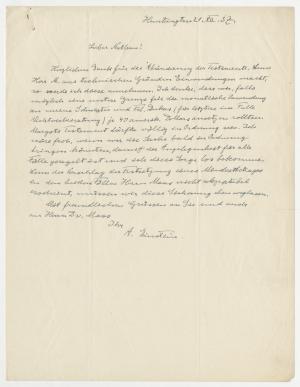 Huntington 21. VII. 37.
Lieber Nathan!
Herzlichen Dank für die Abänderung des Testaments. Wenn
Herr M. aus technischen Gründen Einwendungen macht,
so werde ich diese annehmen. Ich denke, dass wir, falls
möglich eine untere Grenze für die monatliche Zuwendung
an meine Schwester und Frl. Dukas, für letztere im Falle
40 amerik. Dollars ansetzen sollten.
dürfte völlig in Ordnung sein. Ich
wäre froh, wenn wir die Sache bald in Ordnung
bringen könnten, damit die Angelegenheit für alle
Fälle geregelt ist und ich diese Sorge los bekomme.
Wenn der Vorschlag der Festsetzung eines Mindestbetrages
in den beiden Fällen Herrn Maas nicht akzeptabel
erscheint, müssen wir diese weglassen.
Mit freundlichen Grüssen an Sie und auch
an Herrn Dr. Maas
Ihr
A. Einstein